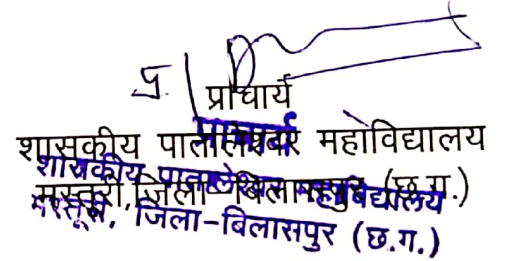 प्राचार्य
शासकीय पातालेश्वर महाविद्यालय
मस्तूरी, जिला-बिलासपुर (छ.ग.)
प्राचार्य
शासकीय पातालेश्वर महाविद्यालय
मस्तूरी, जिला-बिलासपुर (छ.ग.)